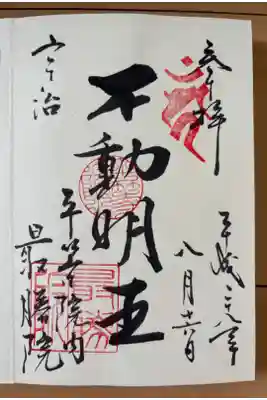 奉拝
平成 年
八月十六日
不動明王
宇治
平等院内
最勝院